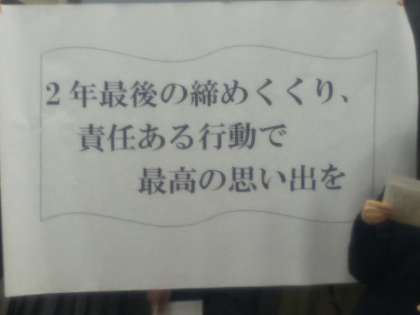 2年最後の締めくくり、
責任ある行動で
最高の思い出を